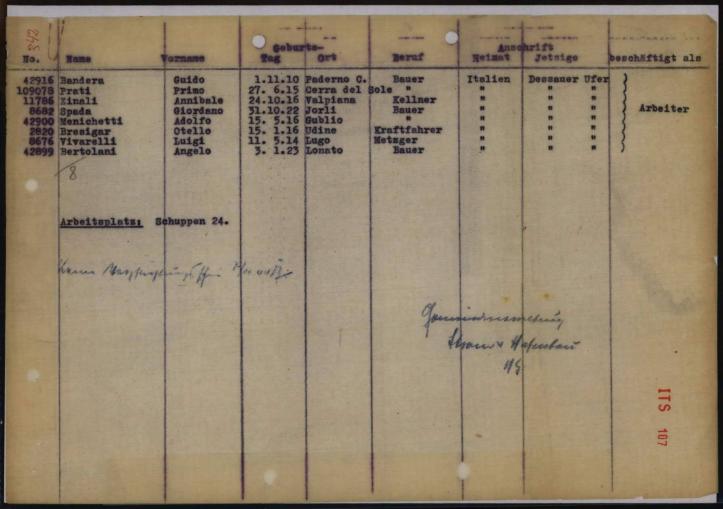 342
Geburts- Anschrift
No. Name Vorname Tag Ort Beruf Heimat Jetzige beschäftigt als
42916 Bandera Guido 1.11.10 Paderno C. Bauer Italien Dessauer Ufer
109078 Prati Primo 27. 6.15 Cerra del Sole " " " "
11786 Zinali Annibale 24.10.16 Valpiana Kellner " " "
8682 Spada Giordano 31.10.22 Jorli Bauer " " " Arbeiter
42900 Menichetti Adolfo 15. 5.16 Gublio " " " "
2820 Bresigar Otello 15. 1.16 Udine Kraftfahrer " " "
8676 Vivarelli Luigi 11. 5.14 Lugo Metzger " " "
42899 Bertolani Angelo 3. 1.23 Lonato Bauer " " "
8
Arbeitsplatz: Schuppen 24.
Strom u Hafenbau
ITS 107